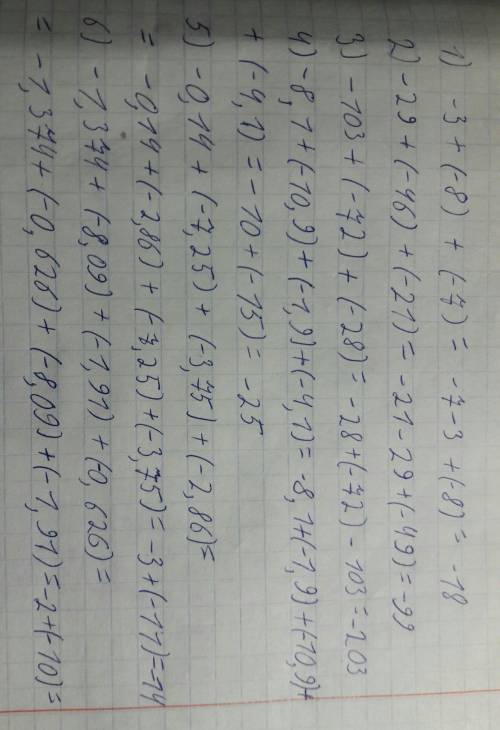 1) -3 + (-8) + (-7) = -7-3 + (-8) = -18
2) -29 + (-46) + (-21) = -21-29 + (-49) = -99
3) -103 + (-72) + (-28) = -28 + (-72) - 103 = -203
4) -8,1 + (-10,9) + (-1,9) + (-4,1) = -8,1 + (-1,9) + (-10,9) +
+ (-4,1) = -10 + (-15) = -25
5) -0,14 + (-7,25) + (-3,75) + (-2,86) =
= -0,14 + (-2,86) + (-7,25) + (-3,75) = -3 + (-11) = -14
6) -1,374 + (-8,09) + (-1,91) + (-0,626) =
= -1,374 + (-0,626) + (-8,09) + (-1,91) = -2 + (-10) =